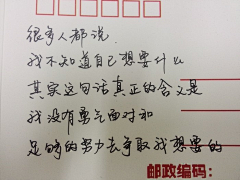 很多人都说.
我不知道自己想要什么
其实这句话真正的含义是
我没有勇气面对和
足够的努力去争取我想要的
邮政编码: